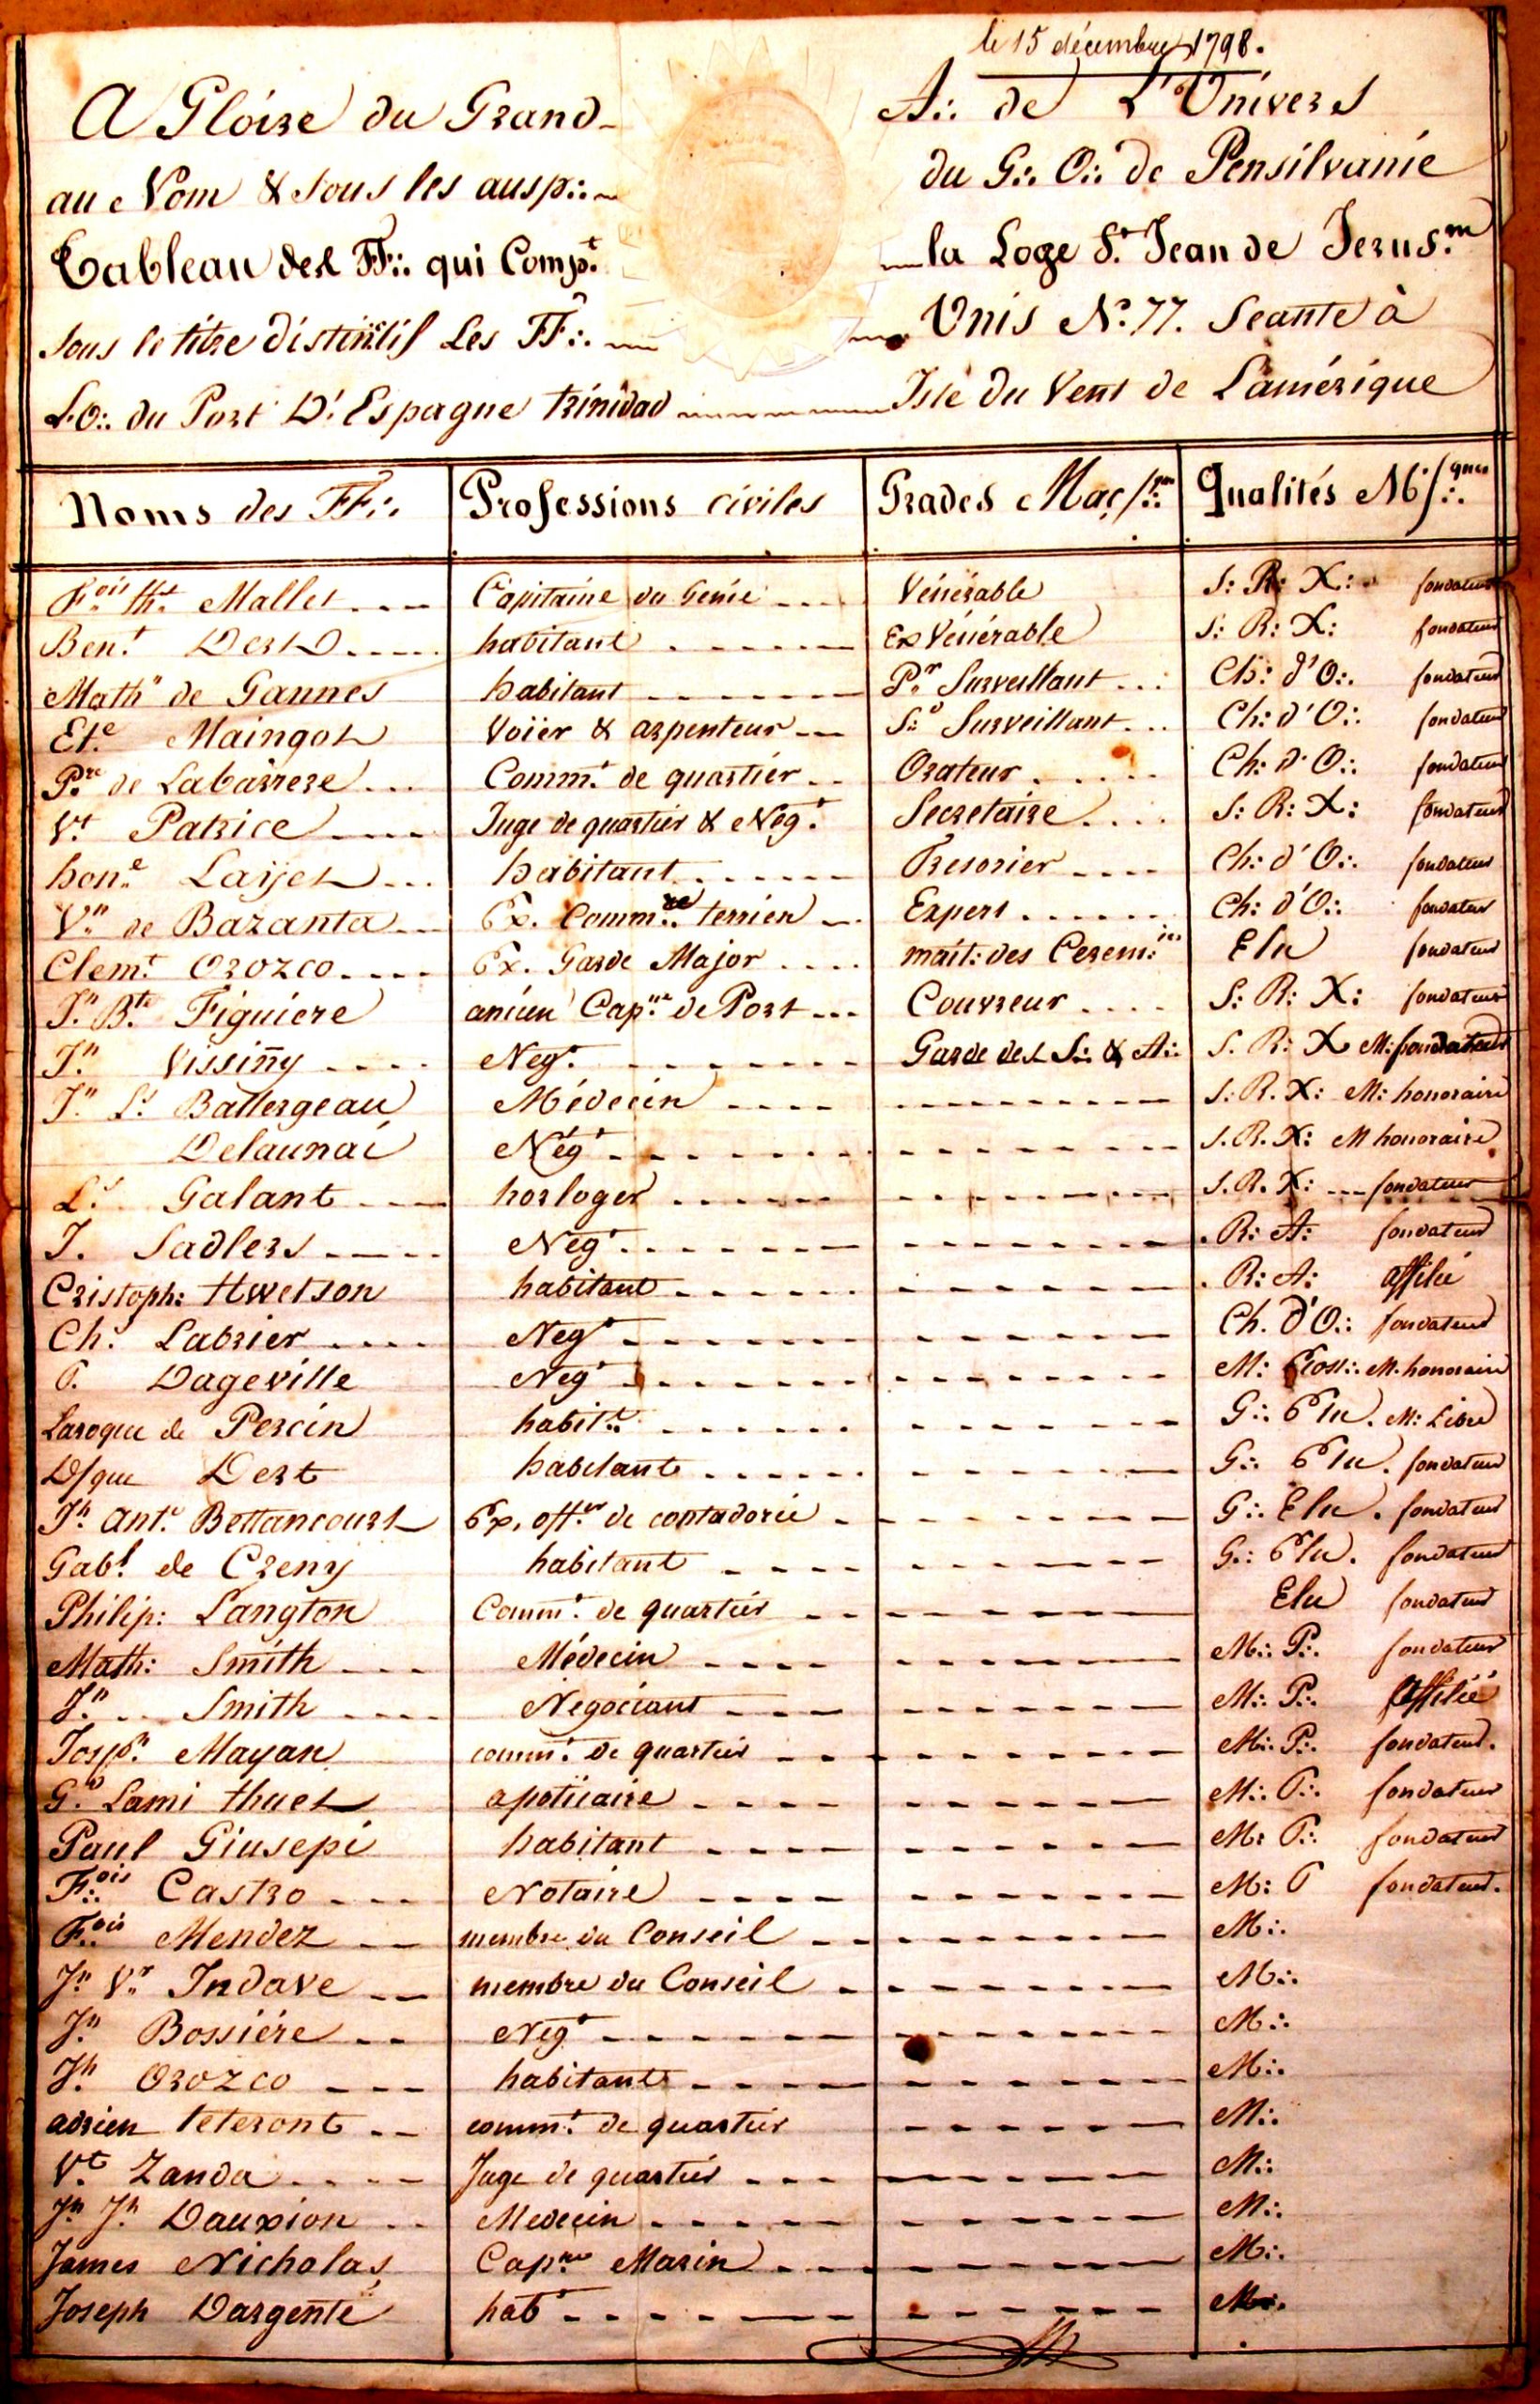 le 15 décembre 1798.
A Gloire du Grand A∴ de L'Univers
au Nom & sous les ausp∴ du G∴ O∴ de Pensilvanie
Tableau des FF∴ qui Comp.t la Loge S.t Jean de Jerus.m
sous le titre distinctif Les FF∴ Unis N.o 77. Seante à
L'O∴ du Port D'Espagne trinidad Isle du Vent de L'amérique
Noms des FF∴ Professions civiles Grades Maç Qualités M
F.ois th.e Mallet Capitaine du Génie Vénérable S: R: X: fondateur
Ben.t Dert habitant Ex Vénérable S: R: X: fondateur
Math.n de Gannes habitant P.r Surveillant Ch: d'O∴ fondateur
Et.e Maingot Voïer & arpenteur S.d Surveillant Ch: d'O∴ fondateur
P.re de Labarrere Comm.t de quartier Orateur Ch: d'O∴ fondateur
V.t Patrice Juge de quartier & Neg.t Secretaire S: R: X: fondateur
hon.e Laijet habitant Tresorier Ch: d'O∴ fondateur
V.n de Bazanta Ex. Comm.re terrien Expert Ch: d'O∴ fondateur
Clem.t Orozco Ex. Garde Major mait: des Cerem.ies Elu fondateur
J.n B.te Figuiere ancien Cap.ne de Port Couvreur S: R: X: fondateur
J.n Vissiñy Neg.t Garde des S∴ & A∴ S. R: X M: fondateur
J.n L.s Ballergeau Médecin S: R. X: M: honoraire
Delaunai Nég.t S. R. X: M honoraire
L.s Galant horloger S. R. X: fondateur
J. Sadlers Neg.t R: A: fondateur
Cristoph: Hwetson habitant R: A: affilié
Ch. Labrier Neg.t Ch. d'O∴ fondateur
P. Dageville Neg.t M: Ecoss∴ M. honoraire
Laroque de Percin habit.t G∴ Elu. M: Libre
D/que Dert habitant G∴ Elu. fondateur
J.h ant.e Bettancourt Ex. off.er de contadorie G∴ Elu. fondateur
Gab.l de Creny habitant G∴ Elu. fondateur
Philip: Langton Comm.t de quartier Elu fondateur
Math: Smith Médecin M∴ P∴ fondateur
J.n Smith Négociant M∴ P∴ affilié
Josp.h Mayan comm.t de quartier M∴ P∴ fondateur.
G.d Lami thuet apoticaire M∴ P∴ fondateur
Paul Giusepi habitant M: P∴ fondateur
F.ois Castro Notaire M: P fondateur.
F.ois Mendez membre du Conseil M∴
J.n V.r Indave membre du Conseil M∴
J.n Bossiére Neg.t M∴
J.h Orozco habitant M∴
adrien teteront comm.t de quartier M∴
V.t Zanda Juge de quartier M∴
J.n J.h Dauxion Medecin M∴
James Nicholas Cap.ne Marin M∴
Joseph Dargente hab.t M∴